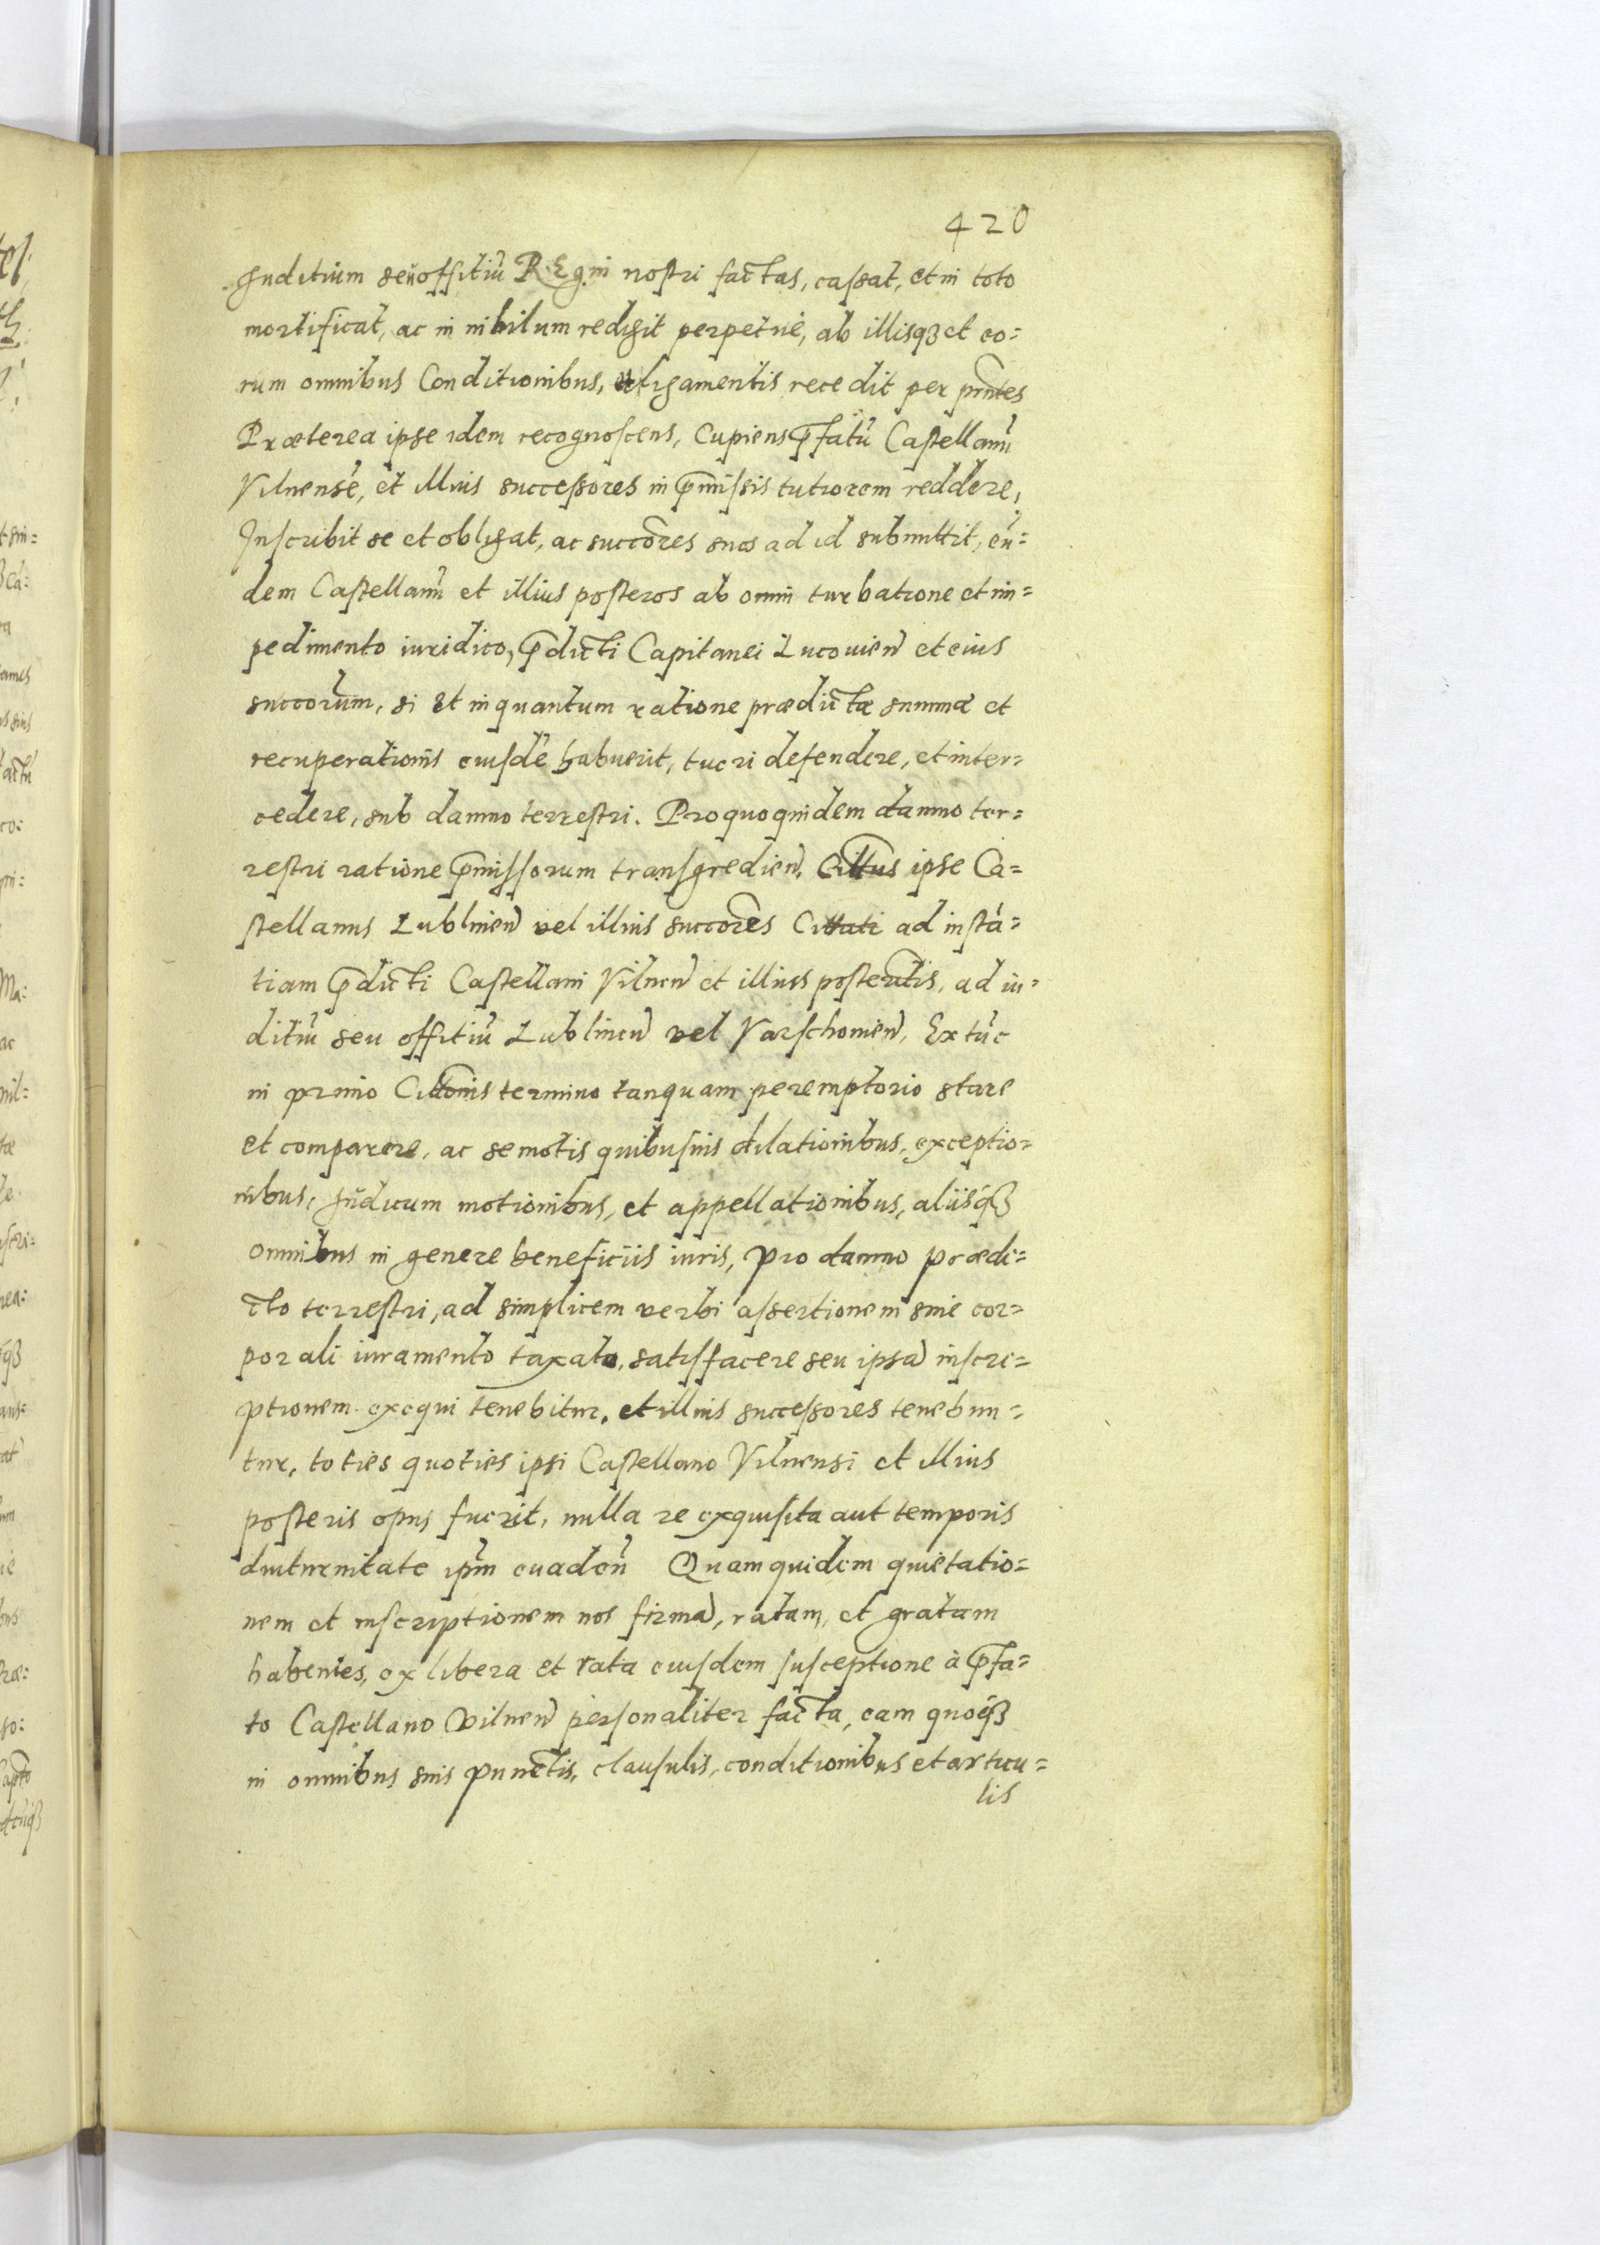 420
Juditium seu offitiũ REgni nostri factas, cassat, et in toto
mortificat, ac in nihilum redigit perpetuè, ab illisqz et eo=
rum omnibus Conditionibus, et ligamentis recedit per pñtes
Præterea ipse idem recognoscens, Cupiens p̃fatũ Castellanũ
Vilnensẽ, et illius successores in p̃missis tutiorem reddere,
Inscribit se et obligat, ac succõres suos ad id submittit, eũ=
dem Castellanũ et illius posteros ab omni turbatione et im=
pedimento iuridico, p̃dicti Capitanei Lucovieñ et eius
succorũm, si et in quantum ratione prædictæ summæ et
recuperationis eiusdẽ habuerit, tueri defendere, et inter=
cedere, sub damno terrestri. Pro quo quidem damno ter=
restri ratione p̃missorum transgredieñ, Cittus ipse Ca=
stellanus Lublineñ vel illius succorẽs Cittati ad instã=
tiam p̃dicti Castellani Vilneñ et illius posteritis, ad iu=
ditiũ seu offitiũ Lublineñ vel Varschovieñ, Ex tũc
in primo Cittonis termino tanquam peremptorio stare
et comparere, ac semotis quibusuis dilationibus, exceptio=
nibus, Judicum motionibus, et appellationibus, aliisqz
omnibus in genere beneficiis iuris, pro damno prædi=
cto terrestri, ad simplicem verbi assertionem sine cor=
porali iuramento taxato, satisfacere seu ipsã inscri=
ptionem exequi tenebitur, et illius successores tenebun=
tur, toties quoties ipsi Castellano Vilnensi et illius
posteris opus fuerit, nulla re exquisita aut temporis
diuturnitate ipm̃ euadeñ Quam quidem quietatio=
nem et inscriptionem nos firmã, ratam, et gratam
habentes, ex libera et rata eiusdem susceptione à p̃fa=
to Castellano Vilneñ personaliter facta, eam quoqz
in omnibus suis punctis, clausulis, conditionibus et articu=
lis